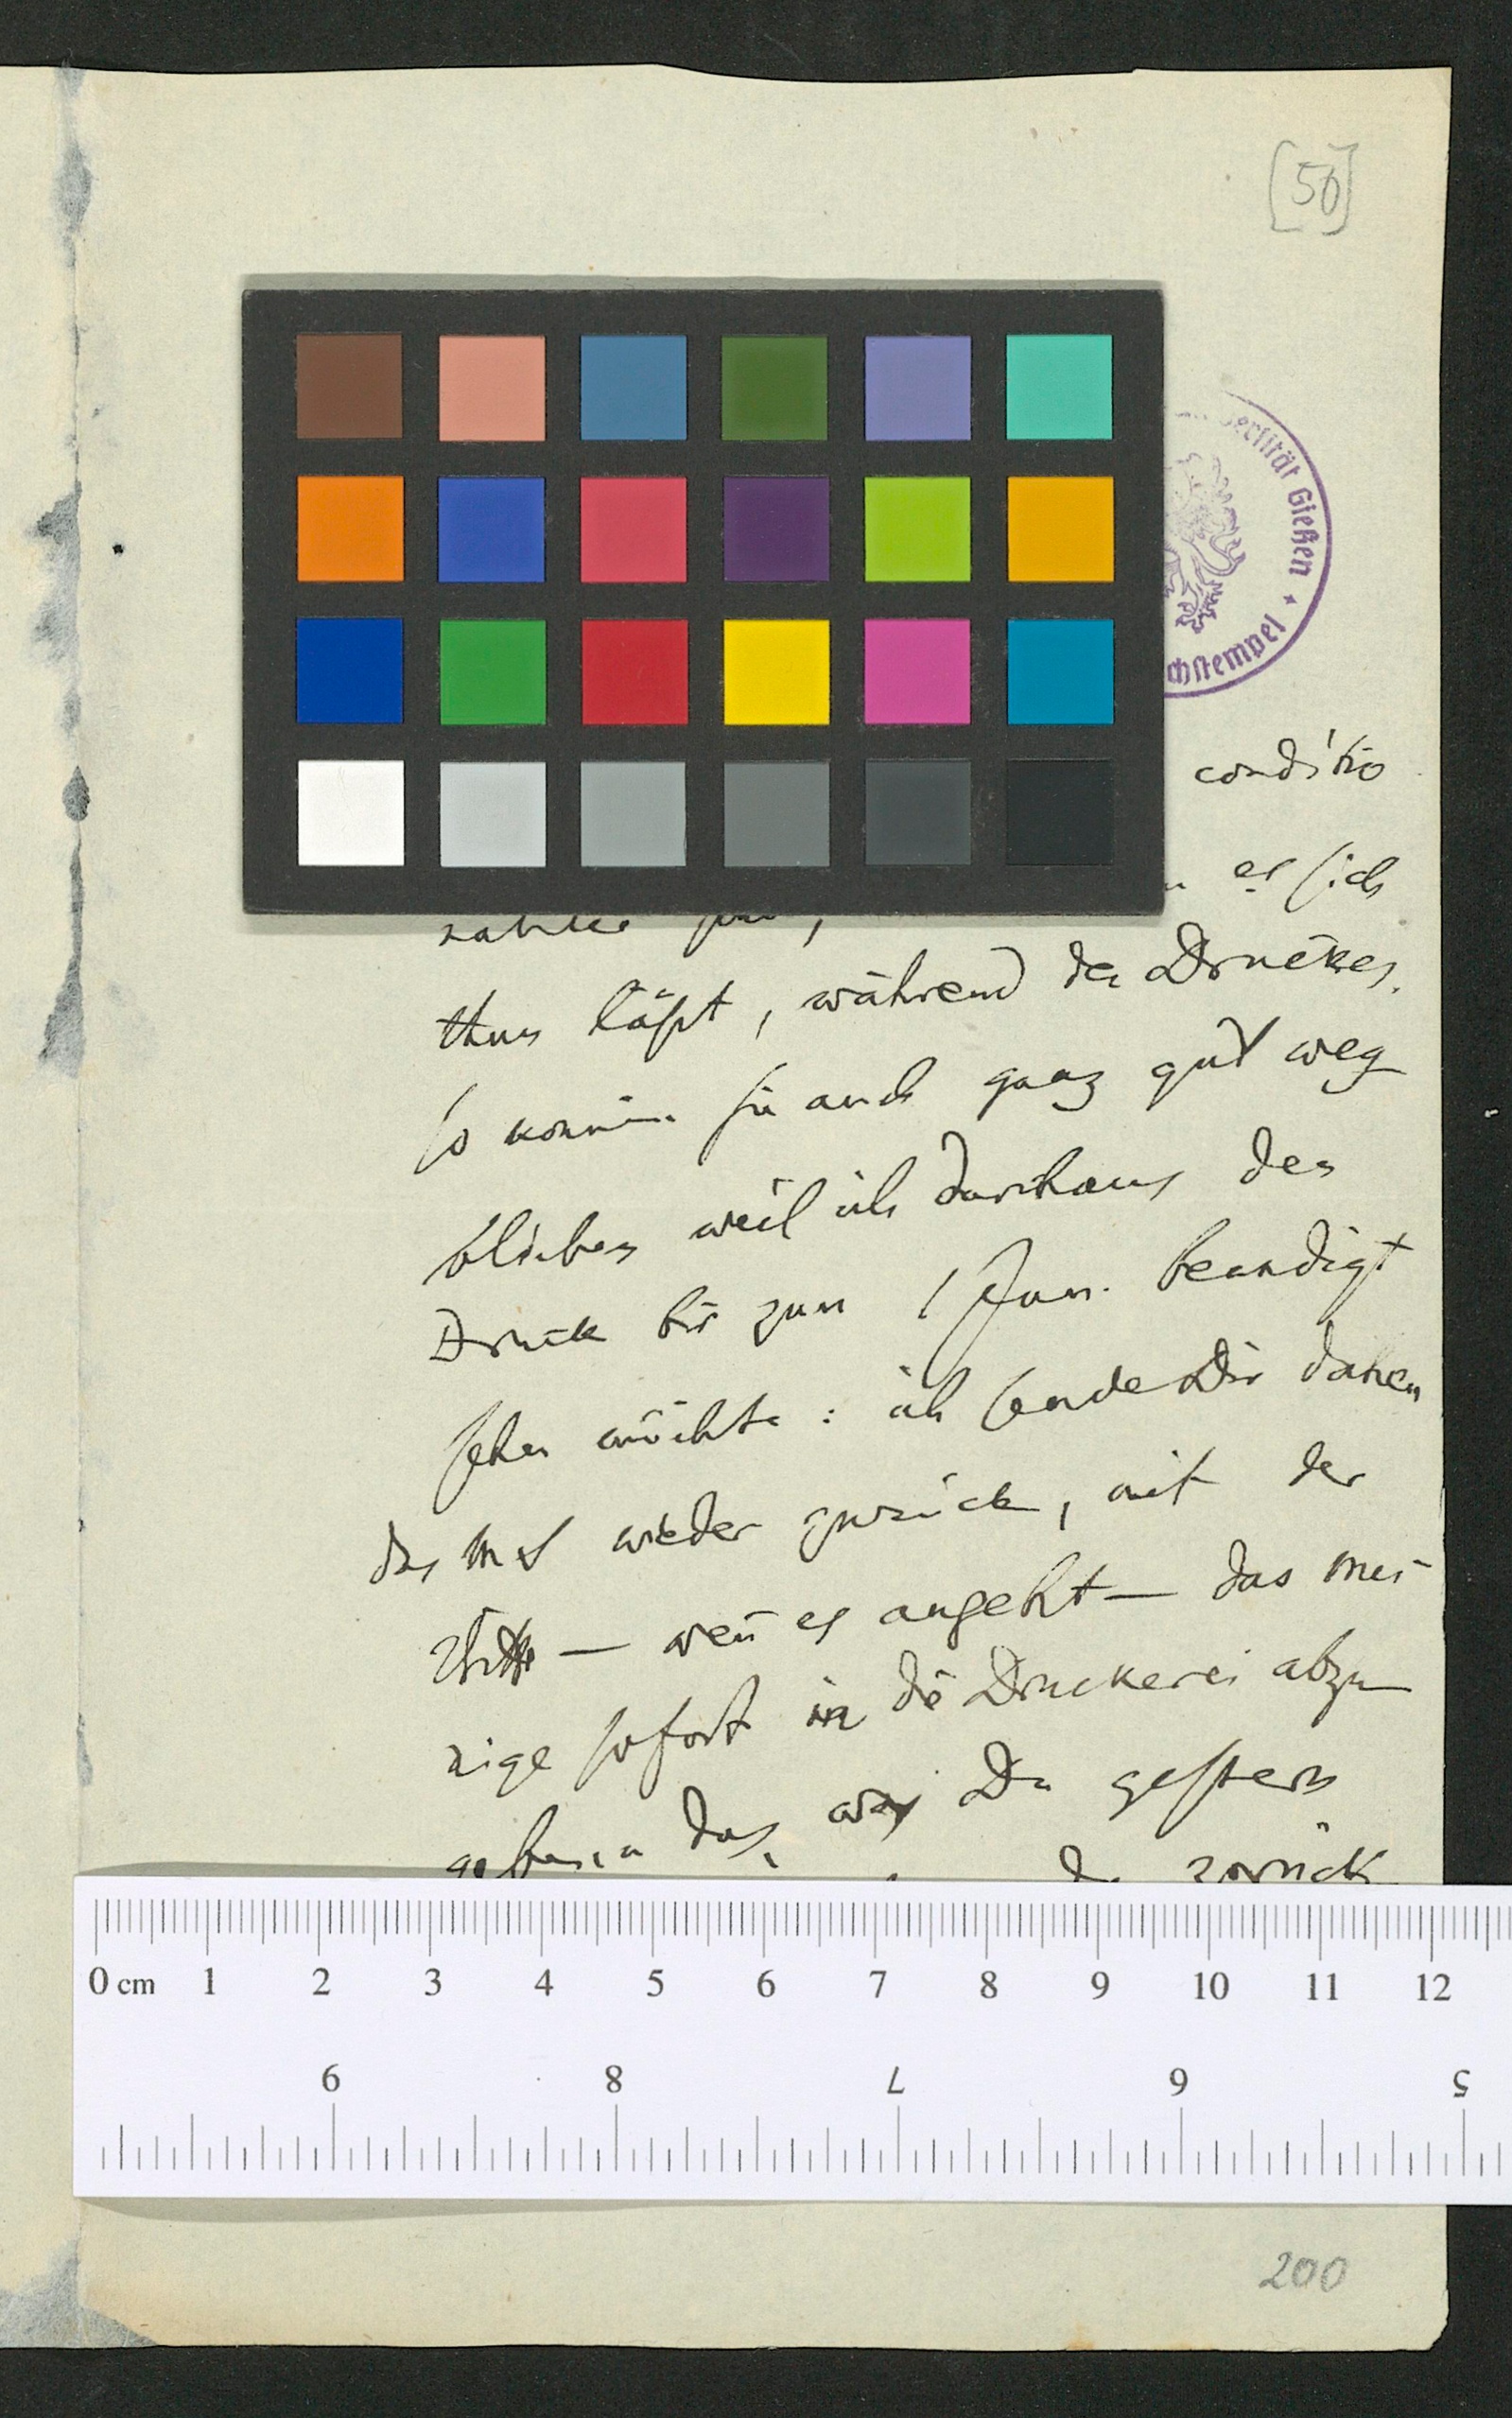 [50]
ersität Gießen
chstempel
conditio
es sich
thun läßt, während des Druckes.
So können sie auch ganz gut weg
bleiben weil ich durchaus den
Druck bis zum 1 Jan. beendigt
sehen möchte: ich sende Dir daher
das Mst wieder zurück, mit der
Bitte — wen̄ es angeht — das mei
nige sofort in die Druckerei abzu
geben, das was Du gestern
zurück
0 cm 1 2 3 4 5 6 7 8 9 10 11 12
9 8 7 6 5
200